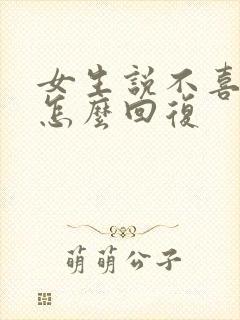 女生説不喜
怎麼回復
萌萌公子